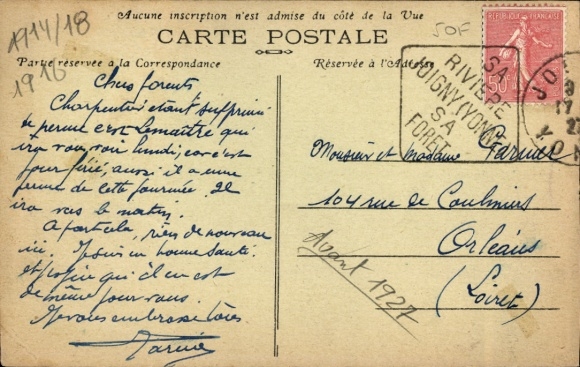 Aucune inscription n'est admise du côté de la Vue
CARTE POSTALE
Partie réservée à la Correspondance
Réservée à l'Adresse
1914/18
1916
50F
RÉPUBLIQUE FRANÇAISE
50
SA
RIVIERE
JOIGNY (YONNE)
SA
FORET
Chers Parents
Charpentier étant supprimé
de perme c'est Lemaître qui
ira vous voir lundi, car c'est
jour férié, aussi il a une
perme de cette journée. Il
ira vers le matin.
A part cela, rien de nouveau
ici. Je suis en bonne santé
et que qu'il en est
de même pour vous.
Je vous embrasse tous
Monsieur et Madame
104 rue de Coulmiers
Orléans
(Loiret)
Avant 1927